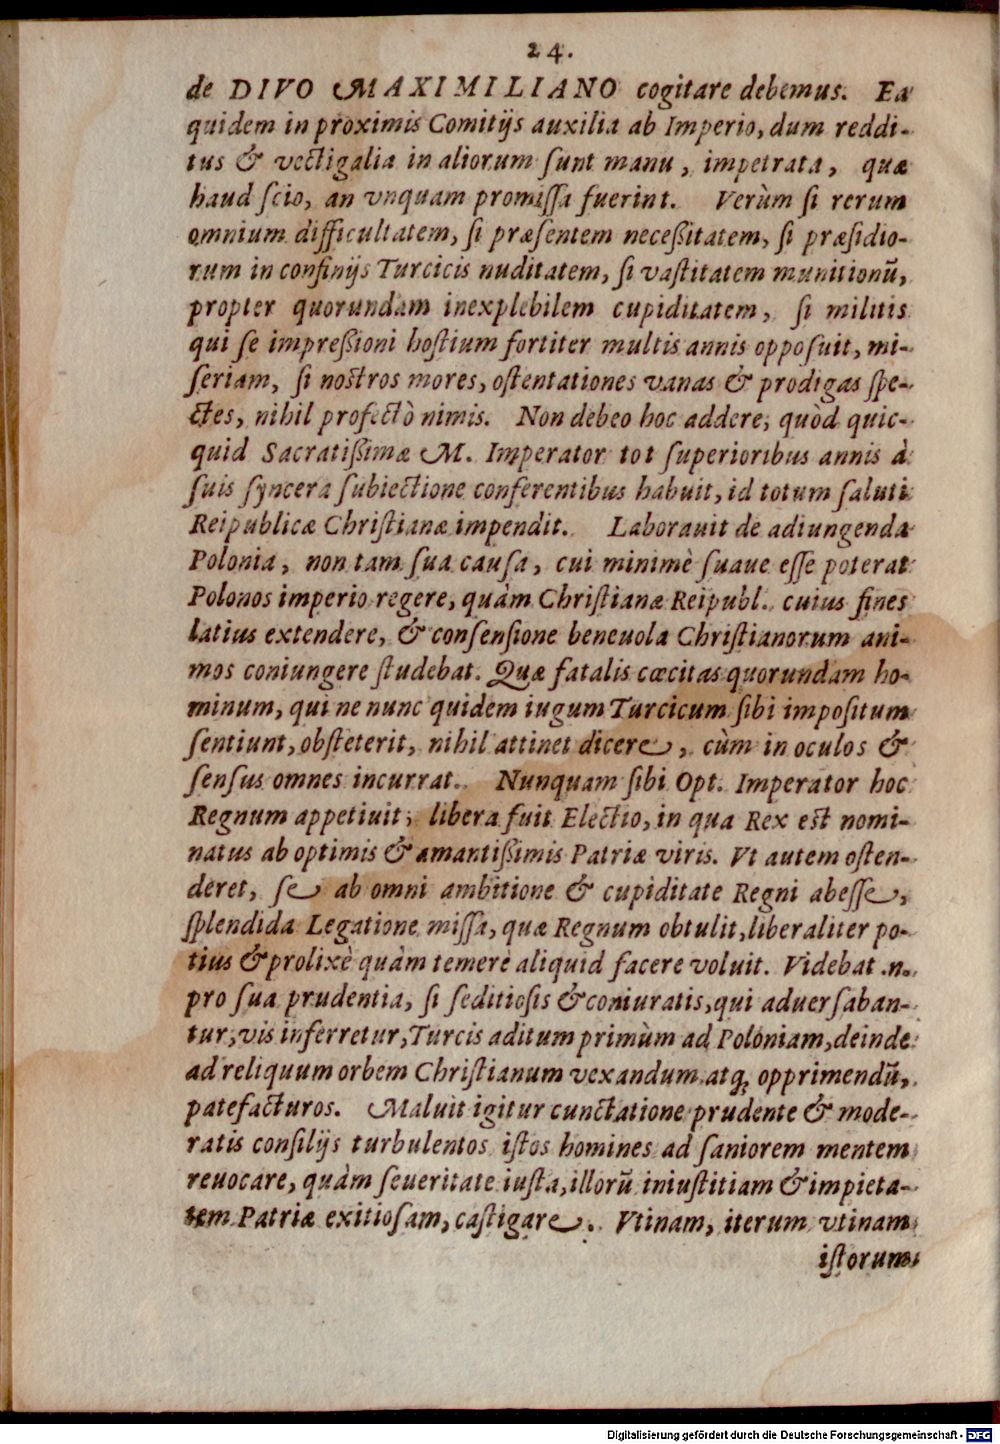 24.
de DIVO MAXIMILIANO cogitare debemus. Ea
quidem in proximis Comitijs auxilia ab Imperio, dum reddi-
tus & vectigalia in aliorum sunt manu, impetrata, quæ
haud scio, an vnquam promissa fuerint. Verùm si rerum
omnium difficultatem, si præsentem neceßitatem, si præsidio-
rum in confinijs Turcicis nuditatem, si vastitatem munitionū,
propter quorundam inexplebilem cupiditatem, si militis
qui se impreßioni hostium fortiter multis annis opposuit, mi-
seriam, si nostros mores, ostentationes vanas & prodigas spe-
ctes, nihil profectò nimis. Non debeo hoc addere, quòd quic-
quid Sacratißimæ M. Imperator tot superioribus annis à
suis syncera subiectione conferentibus habuit, id totum saluti
Reipublicæ Christianæ impendit. Laborauit de adiungenda
Polonia, non tam sua causa, cui minimè suaue esse poterat
Polonos imperio regere, quàm Christianæ Reipubl. cuius fines
latius extendere, & consensione beneuola Christianorum ani-
mos coniungere studebat. Quæ fatalis cœcitas quorundam ho-
minum, qui ne nunc quidem iugum Turcicum sibi impositum
sentiunt, obsteterit, nihil attinet dicere, cùm in oculos &
sensus omnes incurrat. Nunquam sibi Opt. Imperator hoc
Regnum appetiuit, libera fuit Electio, in qua Rex est nomi-
natus ab optimis & amantißimis Patriæ viris. Vt autem osten-
deret, se ab omni ambitione & cupiditate Regni abesse,
splendida Legatione missa, quæ Regnum obtulit, liberaliter po-
tius & prolixè quàm temerè aliquid facere voluit. Videbat .n.
pro sua prudentia, si seditiosis & coniuratis, qui aduersaban-
tur, vis inferretur, Turcis aditum primùm ad Poloniam, deinde
ad reliquum orbem Christianum vexandum atq; opprimendū,
patefacturos. Maluit igitur cunctatione prudente & mode-
ratis consilijs turbulentos istos homines ad saniorem mentem
reuocare, quàm seueritate iusta, illorū iniustitiam & impieta-
tem Patriæ exitiosam, castigare. Vtinam, iterum vtinam
istorum
Digitalisierung gefördert durch die Deutsche Forschungsgemeinschaft - DFG